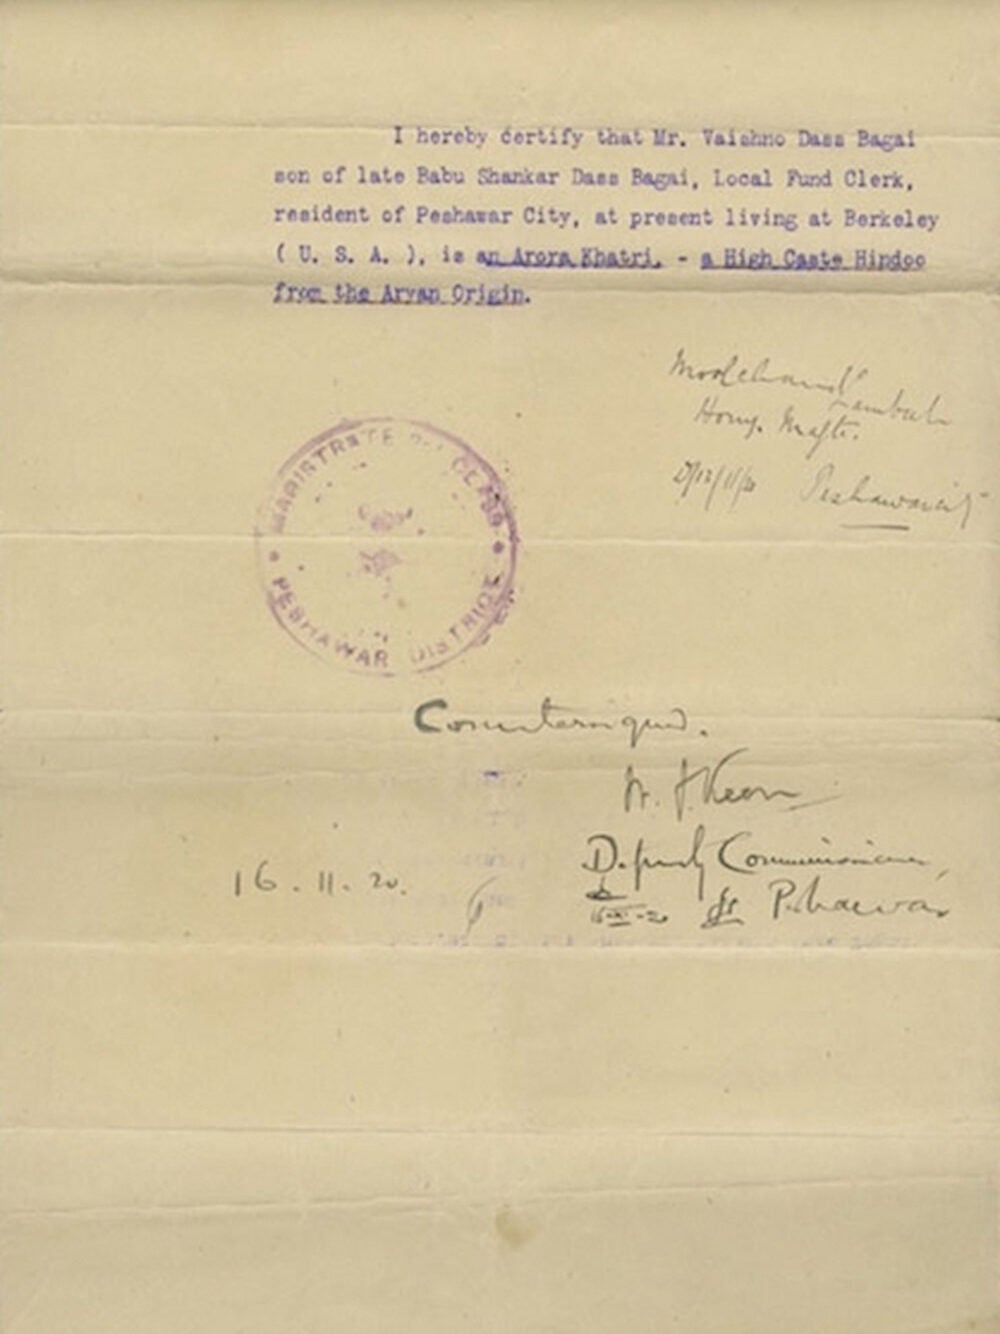 I hereby certify that Mr. Vaishno Dass Bagai
son of late Babu Shankar Dass Bagai, Local Fund Clerk,
resident of Peshawar City, at present living at Berkeley
( U. S. A. ), is an Arora Khatri. - a High Caste Hindoo
from the Aryan Origin.
Moolchand
Hony. Magte.
Peshawar City
MAGISTRATE CLASS
PESHAWAR DISTRICT
Countersigned.
Deputy Commissioner,
16.11.20.
Peshawar